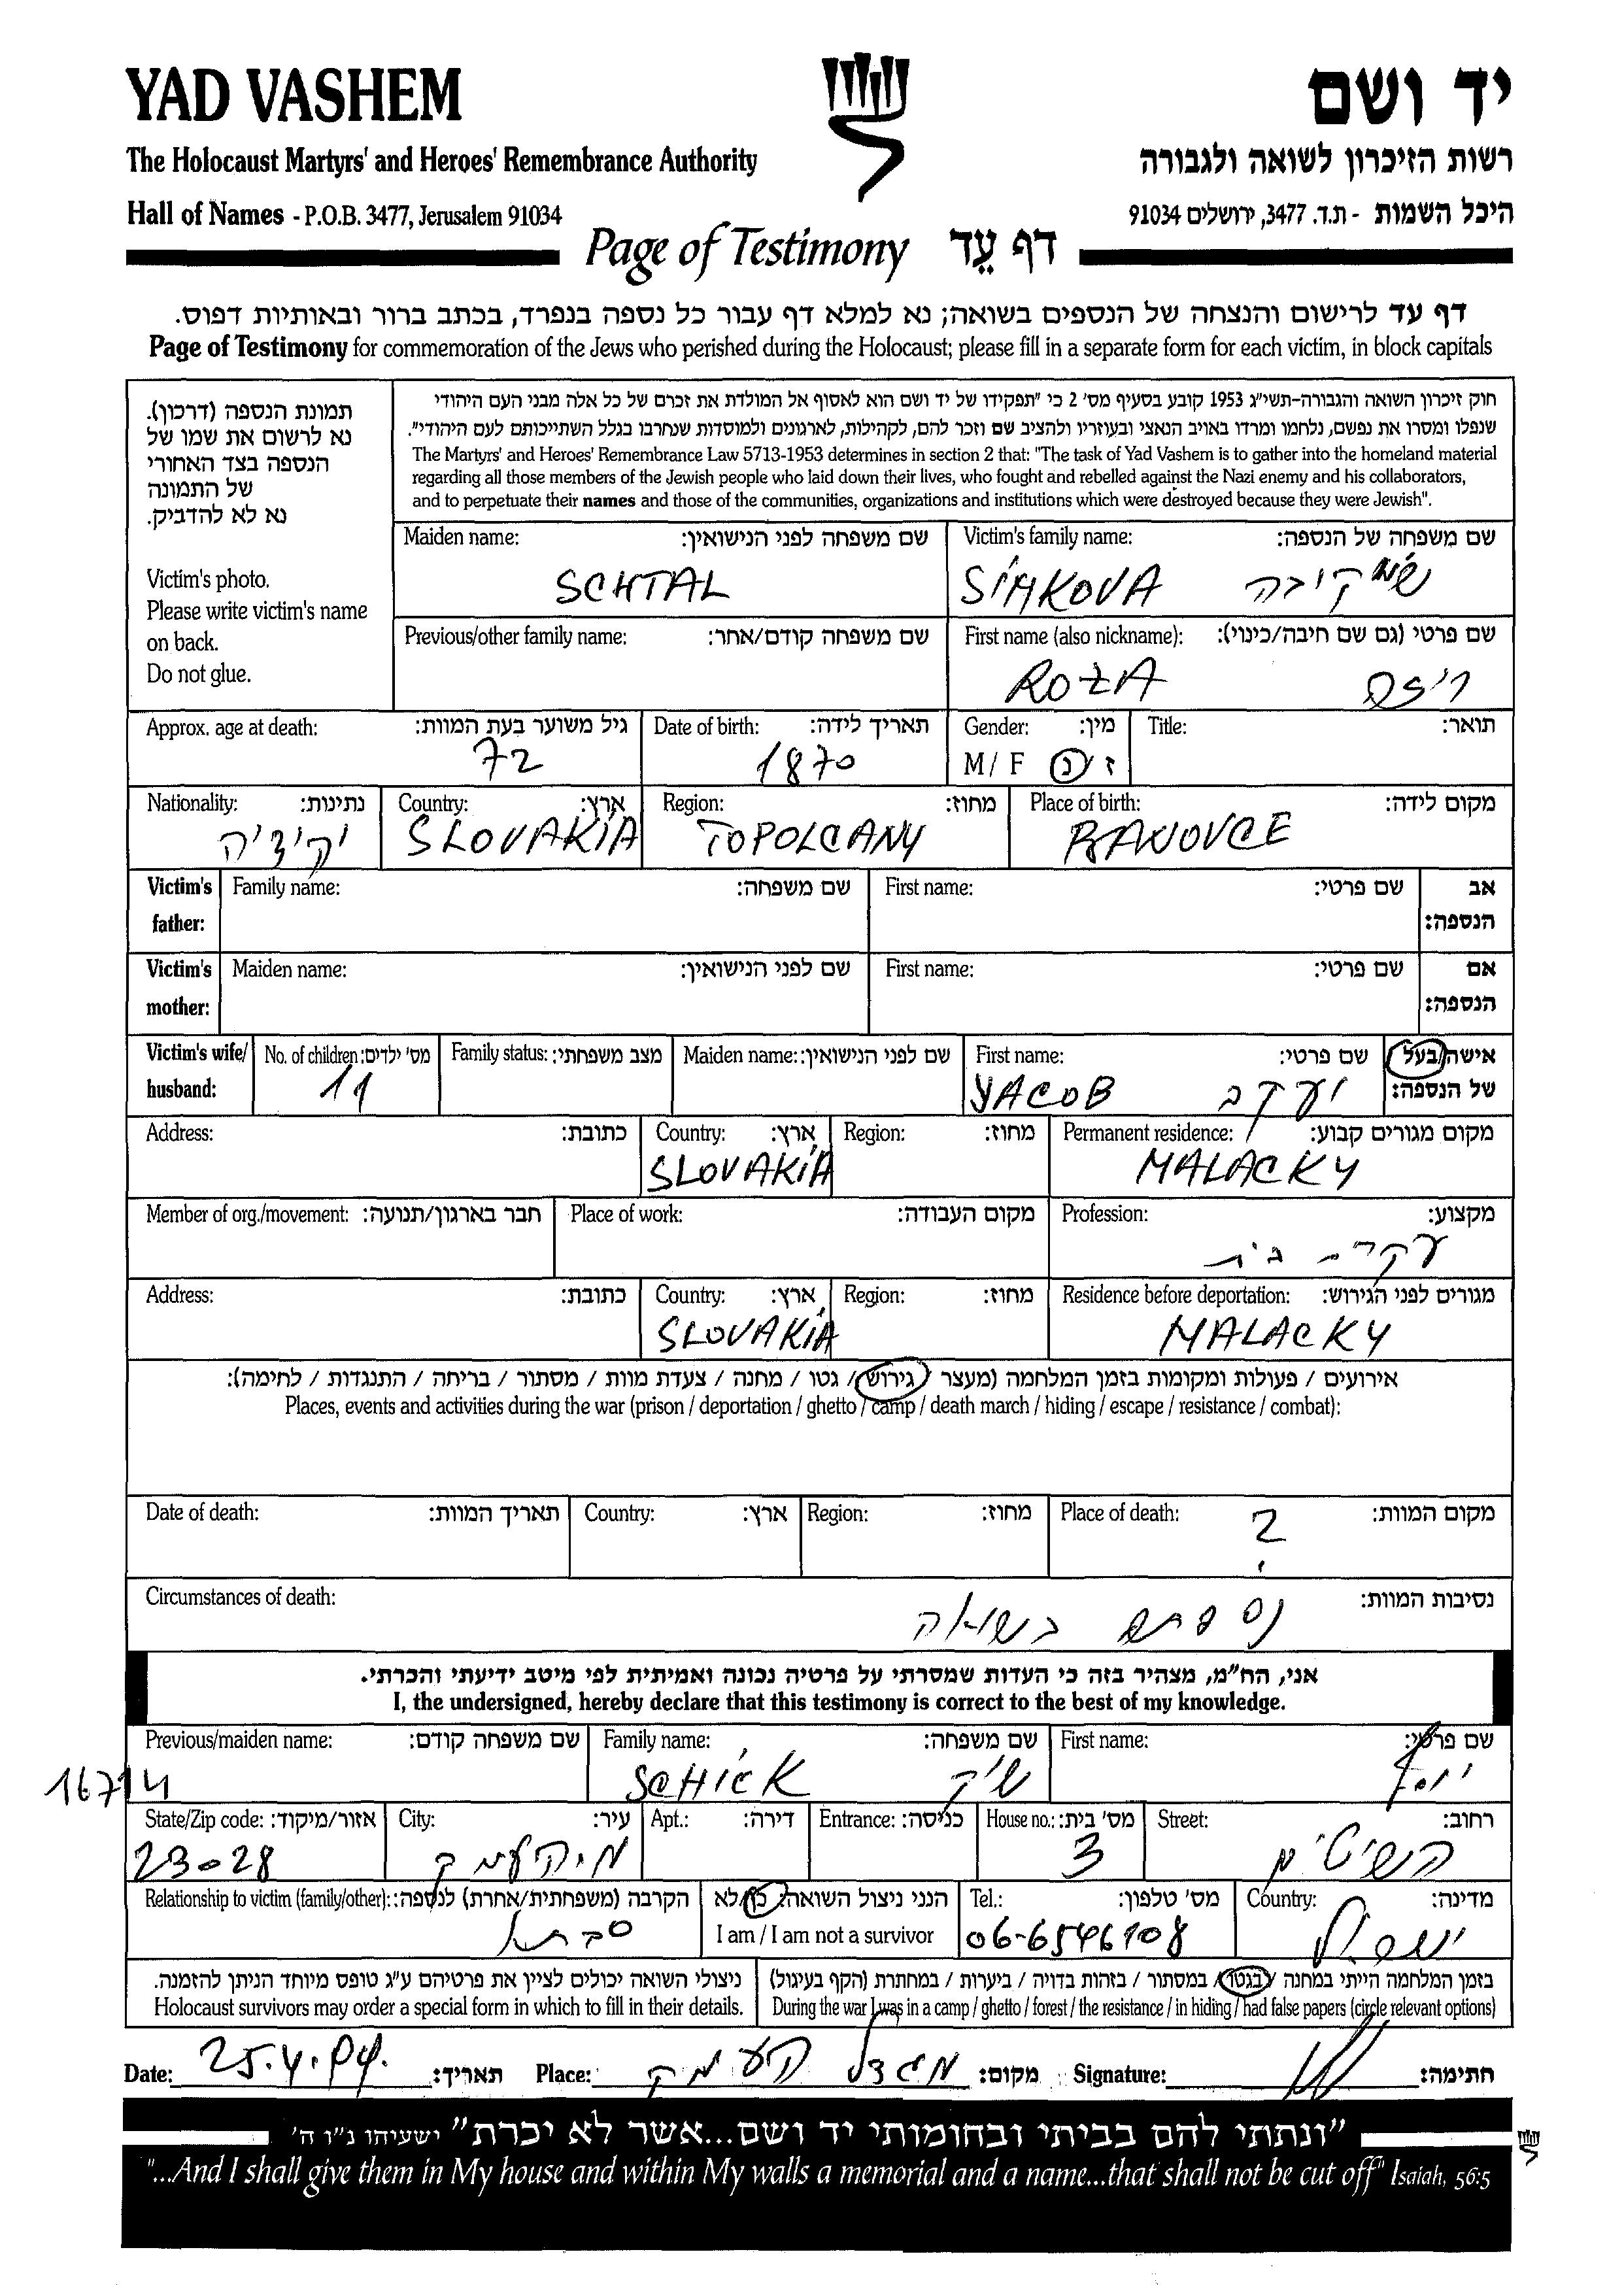 YAD VASHEM
יד ושם
The Holocaust Martyrs' and Heroes' Remembrance Authority
רשות הזיכרון לשואה ולגבורה
Hall of Names - P.O.B. 3477, Jerusalem 91034
היכל השמות - ת.ד. 3477, ירושלים 91034
Page of Testimony דף עֵד
דף עד לרישום והנצחה של הנספים בשואה; נא למלא דף עבור כל נספה בנפרד, בכתב ברור ובאותיות דפוס.
Page of Testimony for commemoration of the Jews who perished during the Holocaust; please fill in a separate form for each victim, in block capitals
תמונת הנספה (דרכון).
נא לרשום את שמו של
הנספה בצד האחורי
של התמונה
נא לא להדביק.
Victim's photo.
Please write victim's name
on back.
Do not glue.
חוק זיכרון השואה והגבורה-תשי"ג 1953 קובע בסעיף מס' 2 כי "תפקידו של יד ושם הוא לאסוף אל המולדת את זכרם של כל אלה מבני העם היהודי
שנפלו ומסרו את נפשם, נלחמו ומרדו באויב הנאצי ובעוזריו ולהציב שם וזכר להם, לקהילות, לארגונים ולמוסדות שנחרבו בגלל השתייכותם לעם היהודי".
The Martyrs' and Heroes' Remembrance Law 5713-1953 determines in section 2 that: "The task of Yad Vashem is to gather into the homeland material
regarding all those members of the Jewish people who laid down their lives, who fought and rebelled against the Nazi enemy and his collaborators,
and to perpetuate their names and those of the communities, organizations and institutions which were destroyed because they were Jewish".
Maiden name: שם משפחה לפני הנישואין:
SCHTAL
Victim's family name: שם משפחה של הנספה:
SIMKOVA שימקובה
Previous/other family name: שם משפחה קודם/אחר:
First name (also nickname): שם פרטי (גם שם חיבה/כינוי):
ROZA
Approx. age at death: גיל משוער בעת המוות:
72
Date of birth: תאריך לידה:
1870
Gender: מין:
M / F ז / נ
Title: תואר:
Nationality: נתינות:
Country: ארץ:
SLOVAKIA
Region: מחוז:
TOPOLCANY
Place of birth: מקום לידה:
BANOVCE
Victim's father: Family name: שם משפחה: First name: שם פרטי: אב הנספה:
Victim's mother: Maiden name: שם לפני הנישואין: First name: שם פרטי: אם הנספה:
Victim's wife/ husband: No. of children: מס' ילדים: Family status: מצב משפחתי: Maiden name: שם לפני הנישואין: First name: שם פרטי: אישה/בעל של הנספה:
11 YACOB יעקב
Address: כתובת: Country: ארץ: Region: מחוז: Permanent residence: מקום מגורים קבוע:
SLOVAKIA MALACKY
Member of org./movement: חבר בארגון/תנועה: Place of work: מקום העבודה: Profession: מקצוע:
עקרת בית
Address: כתובת: Country: ארץ: Region: מחוז: Residence before deportation: מגורים לפני הגירוש:
SLOVAKIA MALACKY
אירועים / פעולות ומקומות בזמן המלחמה (מעצר / גירוש / גטו / מחנה / צעדת מוות / מסתור / בריחה / התנגדות / לחימה):
Places, events and activities during the war (prison / deportation / ghetto / camp / death march / hiding / escape / resistance / combat):
Date of death: תאריך המוות: Country: ארץ: Region: מחוז: Place of death: מקום המוות:
?
Circumstances of death: נסיבות המוות:
נספתה בשואה
אני, הח"מ, מצהיר בזה כי העדות שמסרתי על פרטיה נכונה ואמיתית לפי מיטב ידיעתי והכרתי.
I, the undersigned, hereby declare that this testimony is correct to the best of my knowledge.
Previous/maiden name: שם משפחה קודם: Family name: שם משפחה: First name: שם פרטי:
16714 SCHICK שיק יוסף
State/Zip code: אזור/מיקוד: City: עיר: Apt.: דירה: Entrance: כניסה: House no.: מס' בית: Street: רחוב:
23028 מ. העמק 3 השיטים
Relationship to victim (family/other): הקרבה (משפחתית/אחרת) לנספה: הנני ניצול השואה: כן/לא Tel.: מס' טלפון: Country: מדינה:
I am / I am not a survivor
סבתא 06-6546108 ישראל
ניצולי השואה יכולים לציין את פרטיהם ע"ג טופס מיוחד הניתן להזמנה.
Holocaust survivors may order a special form in which to fill in their details.
בזמן המלחמה הייתי במחנה / בגטו / במסתור / בזהות בדויה / ביערות / במחתרת (הקף בעיגול)
During the war I was in a camp / ghetto / forest / the resistance / in hiding / had false papers (circle relevant options)
Date: 25.4.99. תאריך: Place: מגדל העמק מקום: Signature: חתימה:
"ונתתי להם בביתי ובחומותי יד ושם...אשר לא יכרת" ישעיהו נ"ו ה'
"...And I shall give them in My house and within My walls a memorial and a name...that shall not be cut off" Isaiah, 56:5